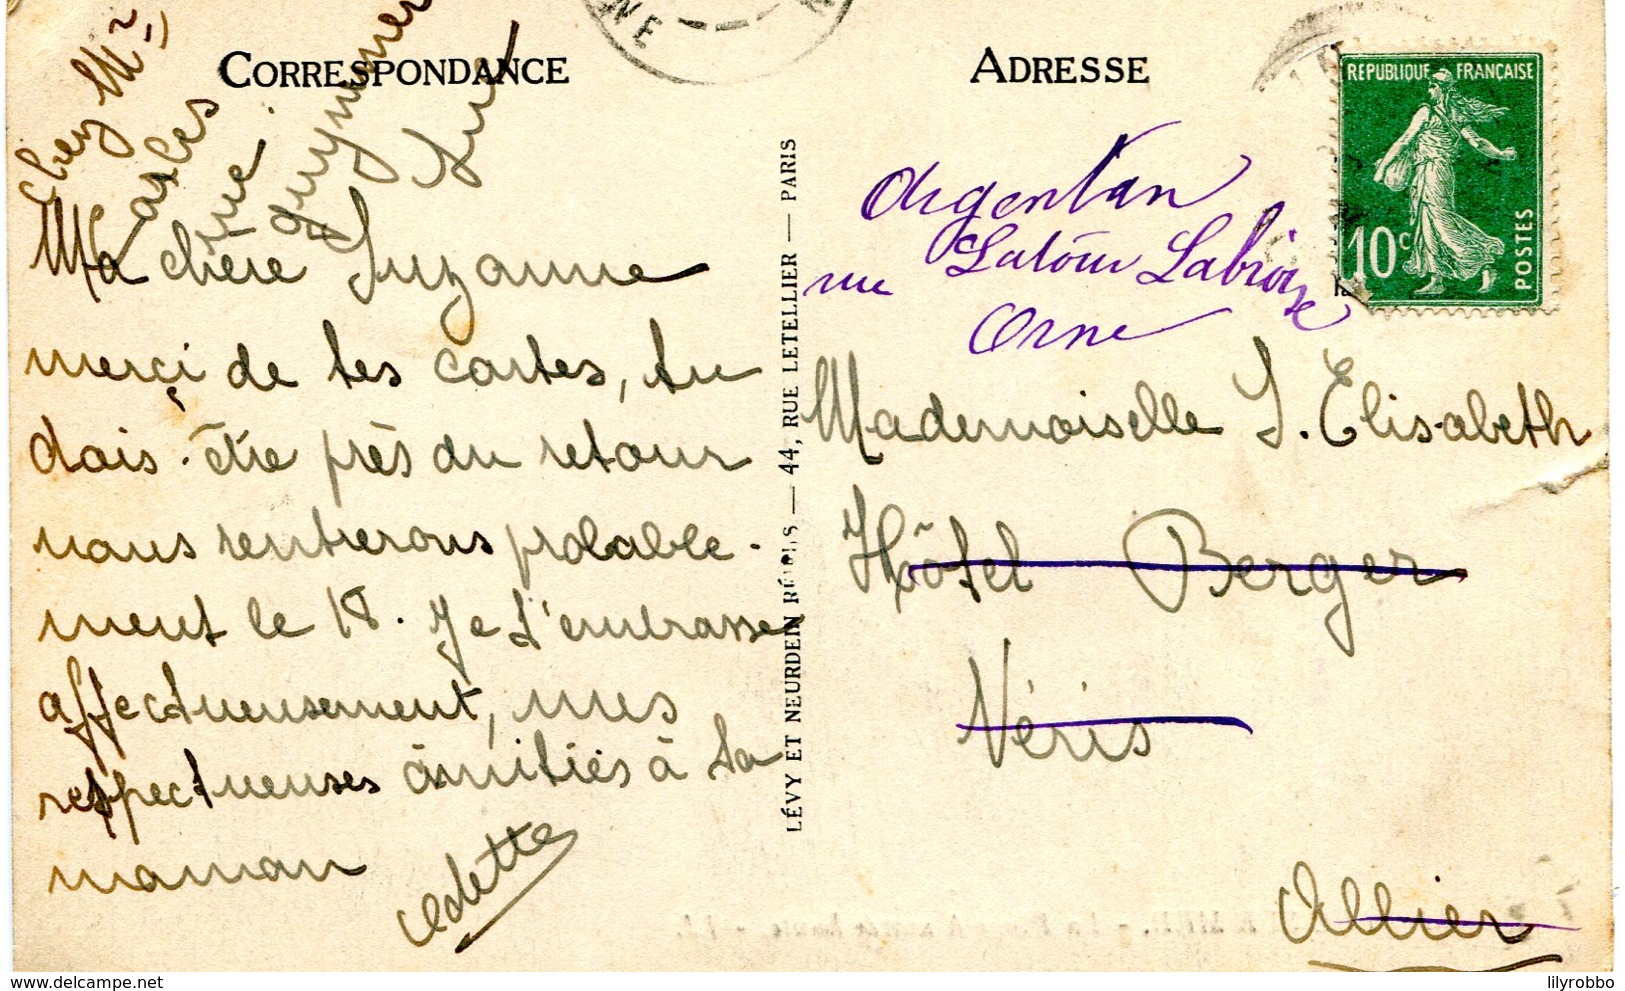 Chez Mr
rue
CORRESPONDANCE
Ma chère Suzanne
merçi de tes cartes, tu
dois-être près du retour
nous rentrerons probable-
ment le 18. Je t'embrasse
affectueusement, mes
respectueuses amitiés à ta
maman
Odette
LÉVY ET NEURDEIN RÉUNIS — 44, RUE LETELLIER — PARIS
ADRESSE
REPUBLIQUE FRANÇAISE
10c
POSTES
Argentan
rue Latour Labroize
Orne
Mademoiselle S. Elisabeth
Hôtel Berger
Néris
Allier
lilyrobbo